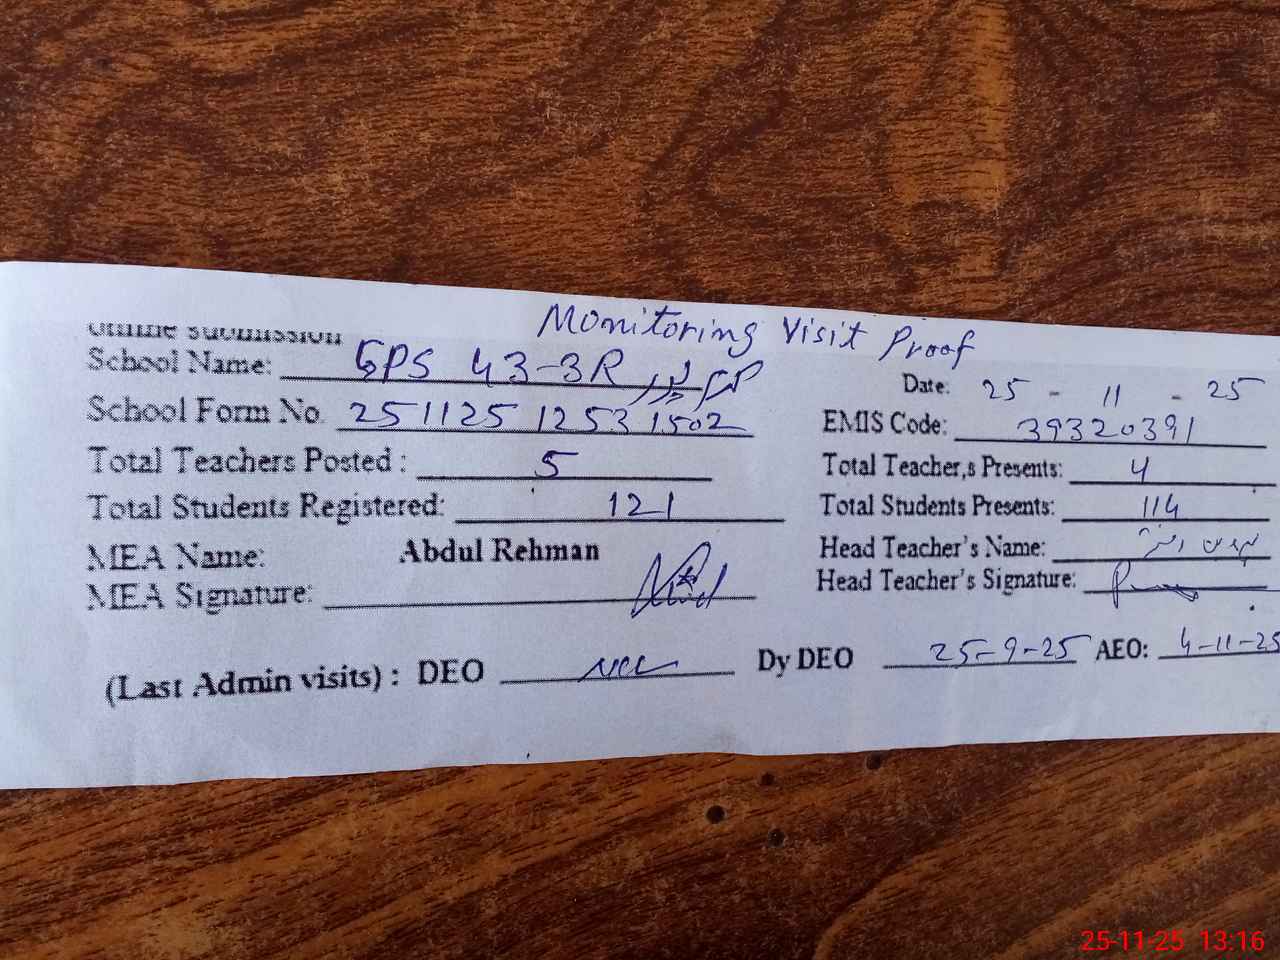 Monitoring Visit Proof
Online Submission
School Name: GPS 43-3R
Date: 25 - 11 - 25
School Form No. 251125 1253 1502
EMIS Code: 39320391
Total Teachers Posted : 5
Total Teacher,s Presents: 4
Total Students Registered: 121
Total Students Presents: 114
MEA Name: Abdul Rehman
Head Teacher's Name:
MEA Signature:
Head Teacher's Signature:
(Last Admin visits) : DEO Dy DEO 25-9-25 AEO: 4-11-25
25-11-25 13:16